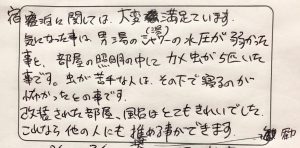 宿泊に関しては、大変満足でいます。
気になった事は、男湯の(湯)シャワーの水圧が弱かった
事と、部屋の照明の中にカメ虫が5匹いた
事です。虫が苦手な人は、その下で寝るのが
怖かったとの事です。
改装された部屋、風呂はとてもきれいでした。
これなら他の人にも推める事ができます。